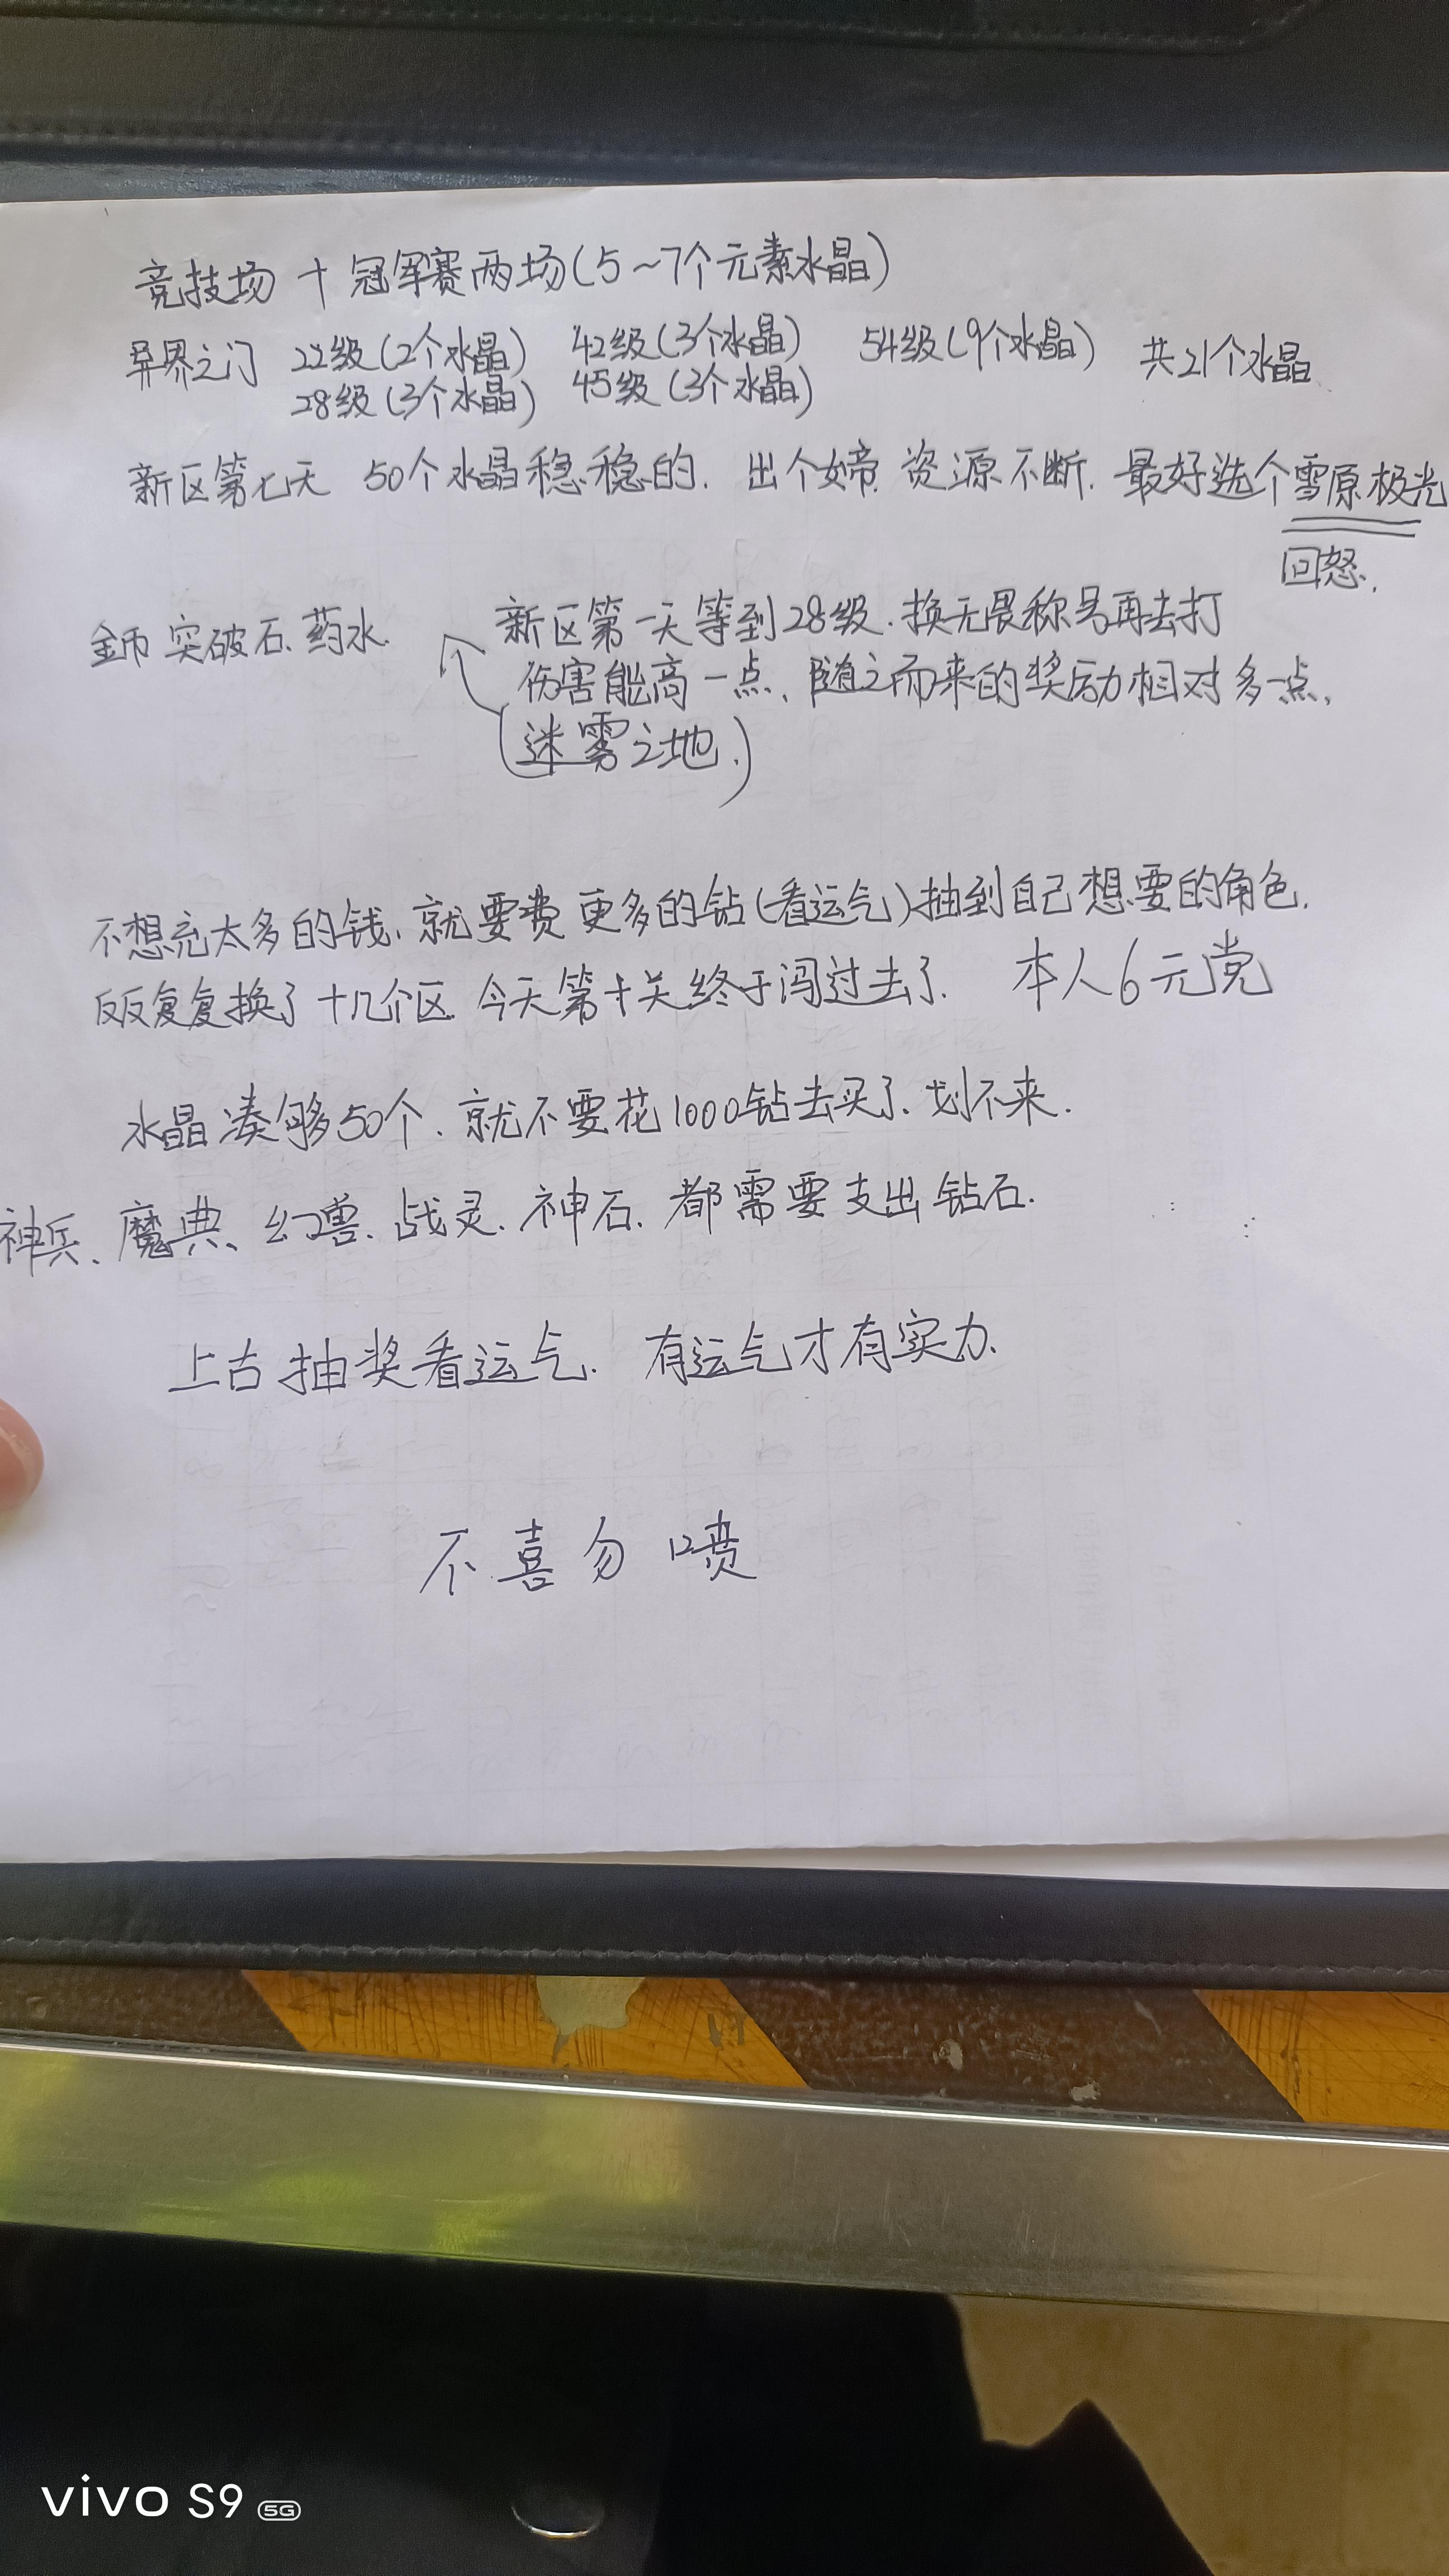 竞技场 + 冠军赛两场(5~7个元素水晶)
异界之门 22级(2个水晶) 42级(3个水晶) 54级(9个水晶) 共21个水晶.
28级(3个水晶) 45级(3个水晶)
新区第七天 50个水晶稳稳的. 出个女帝. 资源不断. 最好选个雪原极光
回怒.
金币 突破石. 药水. 新区第一天等到28级. 换无畏称号再去打
伤害能高一点、随之而来的奖励相对多一点.
(迷雾之地.)
不想充太多的钱. 就要费更多的钻(看运气)抽到自己想要的角色.
反反复复换了十几个区. 今天第十关终于闯过去了. 本人6元党
水晶凑够50个. 就不要花1000钻去买了. 划不来.
神兵、魔典、幻兽. 战灵. 神石. 都需要支出钻石.
上古抽奖看运气. 有运气才有实力.
不喜勿喷
vivo S9 5G